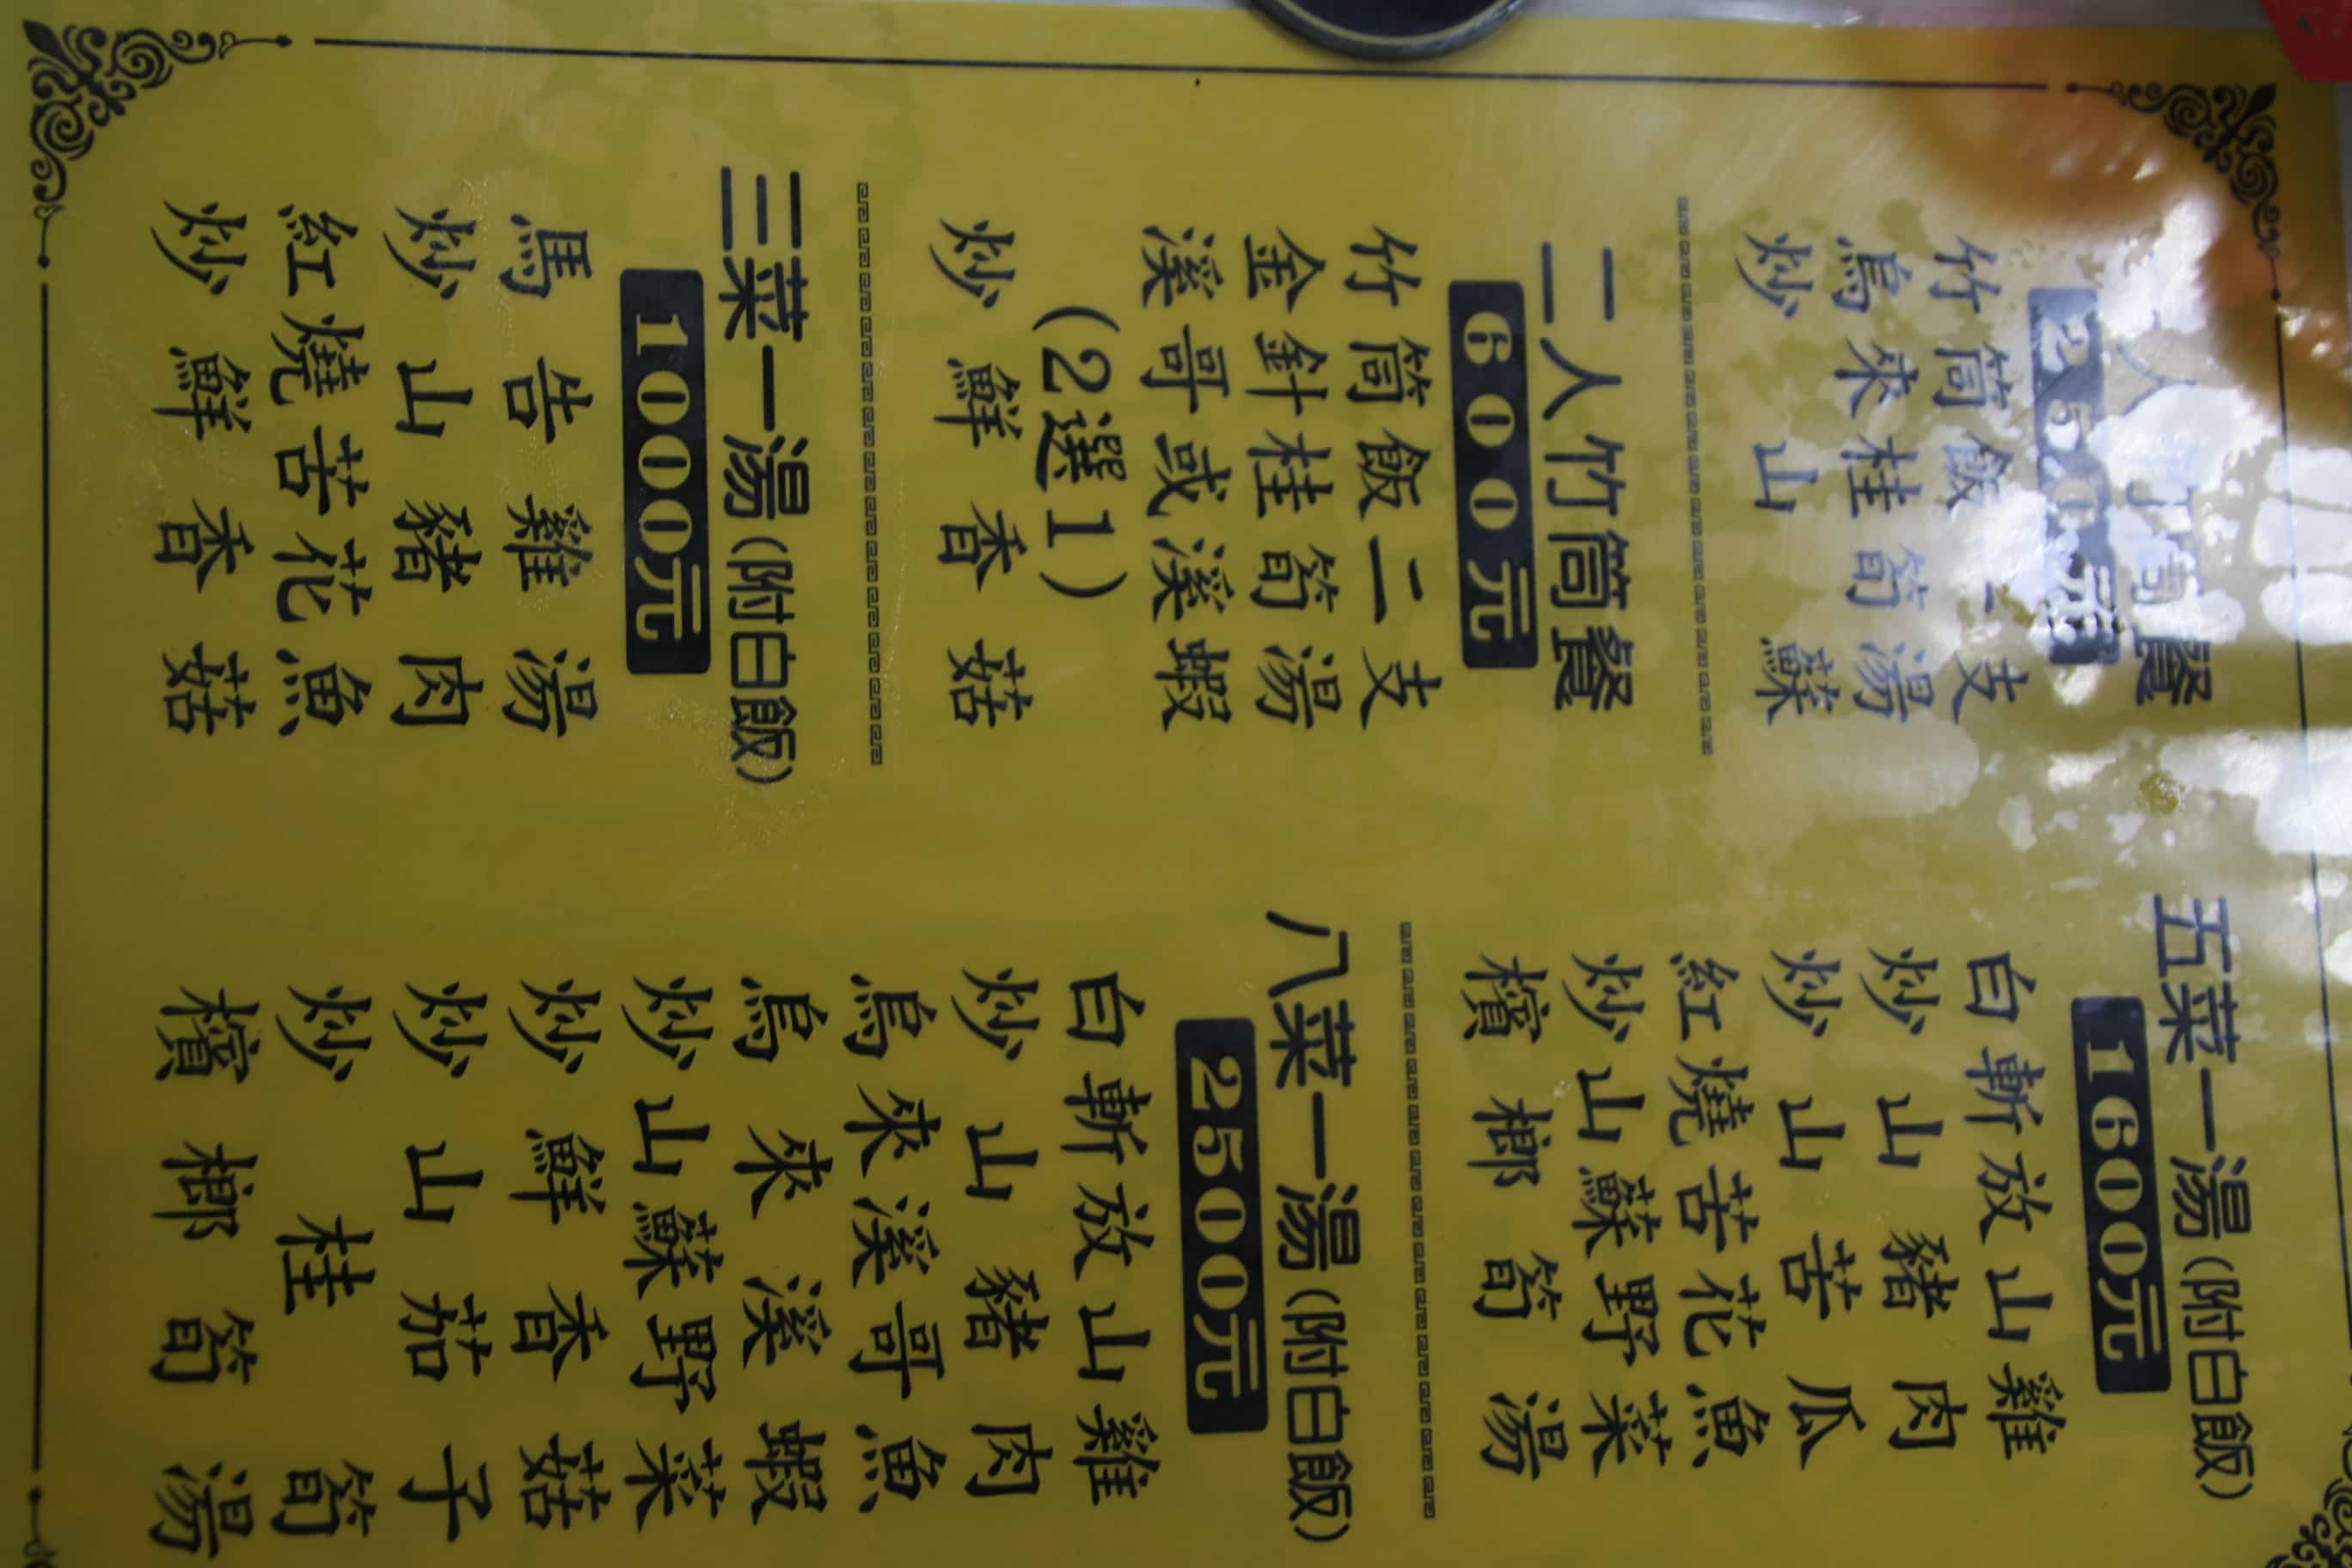 人竹筒餐
250元
竹筒飯一支
烏來桂筍湯
炒山蘇
二人竹筒餐
600元
竹筒飯二支
金針桂筍湯
溪哥或溪蝦
(2選1)
炒鮮香菇
三菜一湯(附白飯)
1000元
馬告雞湯
炒山豬肉
紅燒苦花魚
炒鮮香菇
五菜一湯(附白飯)
1600元
白斬放山雞
炒山豬肉
炒山苦瓜
紅燒苦花魚
炒山蘇野菜
檳榔筍湯
八菜一湯(附白飯)
2500元
白斬放山雞
炒山豬肉
烏來溪哥魚
烏來溪蝦
炒山蘇野菜
炒鮮香菇
炒山茄子
炒桂筍
檳榔筍湯